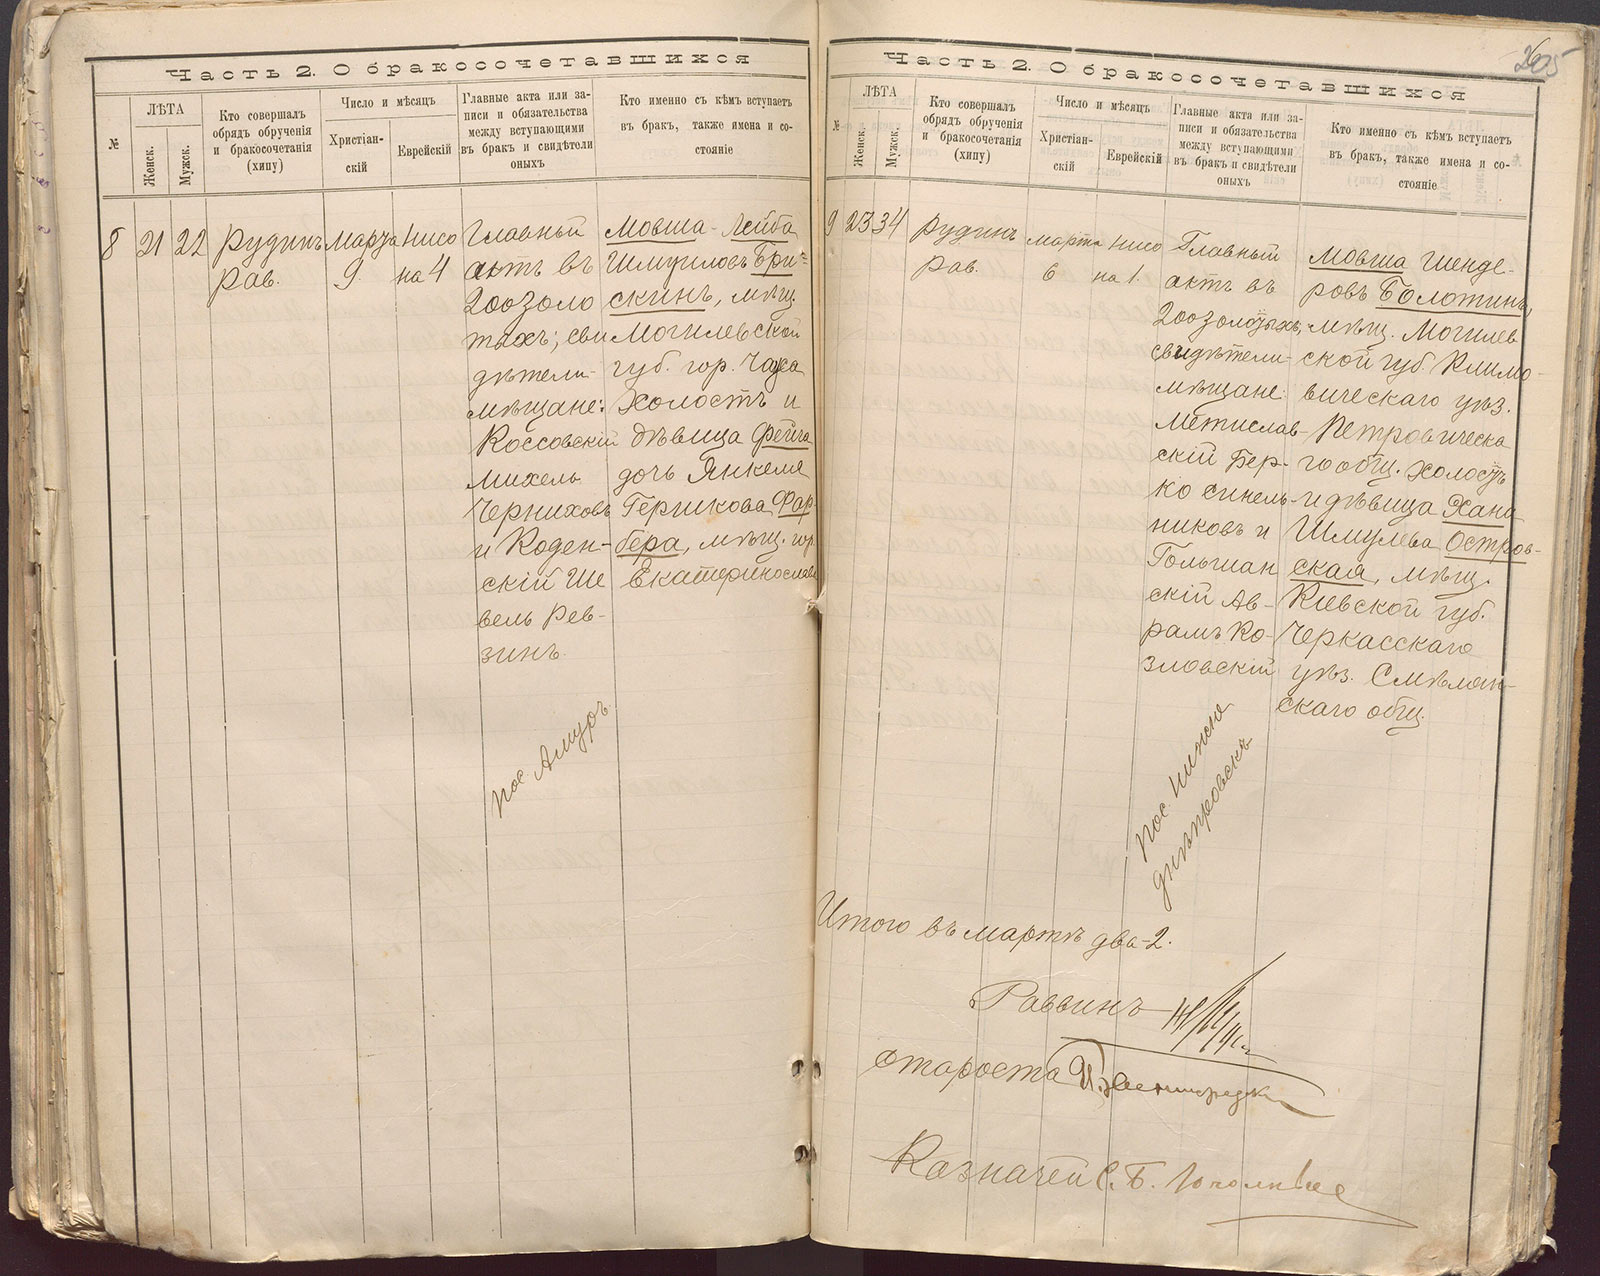 Часть 2. О бракосочетавшихся
№
ЛѢТА
Женск.
Мужск.
Кто совершалъ
обрядъ обрученія
и бракосочетанія
(хипу)
Число и мѣсяцъ
Христіан-
скій
Еврейскій
Главные акта или за-
писи и обязательства
между вступающими
въ бракъ и свидѣтели
оныхъ
Кто именно съ кѣмъ вступаетъ
въ бракъ, также имена и со-
стояніе
8
21
22
Рудинъ
Рав.
Марта
9.
Нисо
на 4
Главный
актъ въ
200 золо
тыхъ; сви
дѣтели-
мѣщане:
Коссовскій
Михель
Черниховъ
и Коден-
скій Ше
вель Рев-
зинъ.
Мовша-Лейба
Шмуиловъ Бри=
скинъ, мѣщ.
Могилевской
губ. гор. Чауса
холостъ и
дѣвица Фейга
дочь Янкеля
Гершкова Фар-
бера, мѣщ. гор.
Екатеринослава
пос. Амуръ
205
Часть 2. О бракосочетавшихся
№
ЛѢТА
Женск.
Мужск.
Кто совершалъ
обрядъ обрученія
и бракосочетанія
(хипу)
Число и мѣсяцъ
Христіан-
скій
Еврейскій
Главные акта или за-
писи и обязательства
между вступающими
въ бракъ и свидѣтели
оныхъ
Кто именно съ кѣмъ вступаетъ
въ бракъ, также имена и со-
стояніе
9
23
34
Рудинъ
Рав.
марта
6
нисо
на 1.
Главный
актъ въ
200 золотыхъ;
свидѣтели-
мѣщане:
Мстислав-
скій Бер-
ко Синель-
никовъ и
Гольшан
скій Ав-
рамъ Ко-
зловскій
Мовша Шенде-
ровъ Болотинъ,
мѣщ. Могилев
ской губ. Климо-
вическаго уѣз.
Петровическа
го общ. холостъ
и дѣвица Хана
Шмулева Остров-
ская, мѣщ.
Кіевской губ.
Черкасскаго
уѣз. Смѣлян-
скаго общ.
пос. Нижне
днѣпровскъ
Итого въ мартѣ два-2.
Раввинъ
староста
Казначей С. Б.